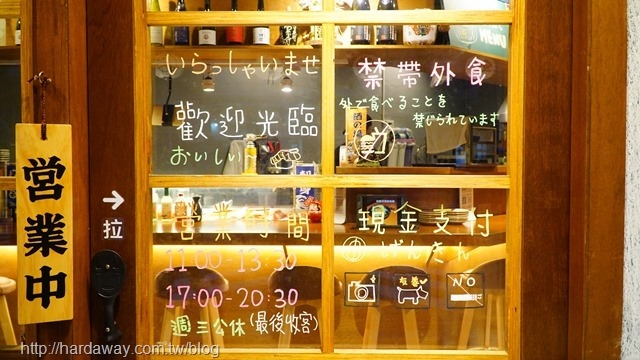 いらっしゃいませ
歡迎光臨
おいしい～
禁帶外食
外で食べることを
禁じられています
MENU
営業中
→
拉
営業時間
11:00-13:30
17:00-20:30
週三公休(最後收客)
現金支付
げんきん
有養
NO
http://hardaway.com.tw/blog